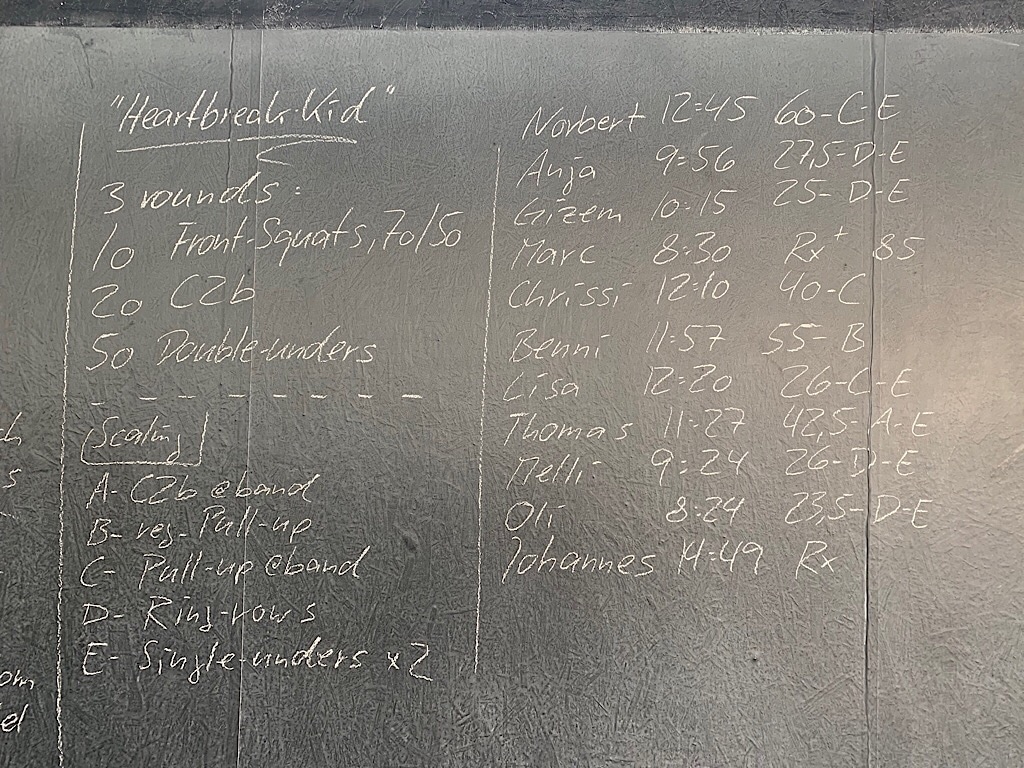 "Heartbreak-Kid"
3 rounds:
10 Front-Squats, 70/50
20 C2b
50 Double-unders
- - - - - - - -
Scaling
A- C2b @band
B- reg. Pull-up
C- Pull-up @band
D- Ring-rows
E- Single-unders x2
Norbert 12:45 60-C-E
Anja 9:56 27,5-D-E
Gizem 10:15 25-D-E
Marc 8:30 Rx+ 85
Chrissi 12:10 40-C
Benni 11:57 55-B
Lisa 12:20 26-C-E
Thomas 11:27 42,5-A-E
Melli 9:24 26-D-E
Oli 8:24 23,5-D-E
Johannes 14:49 Rx